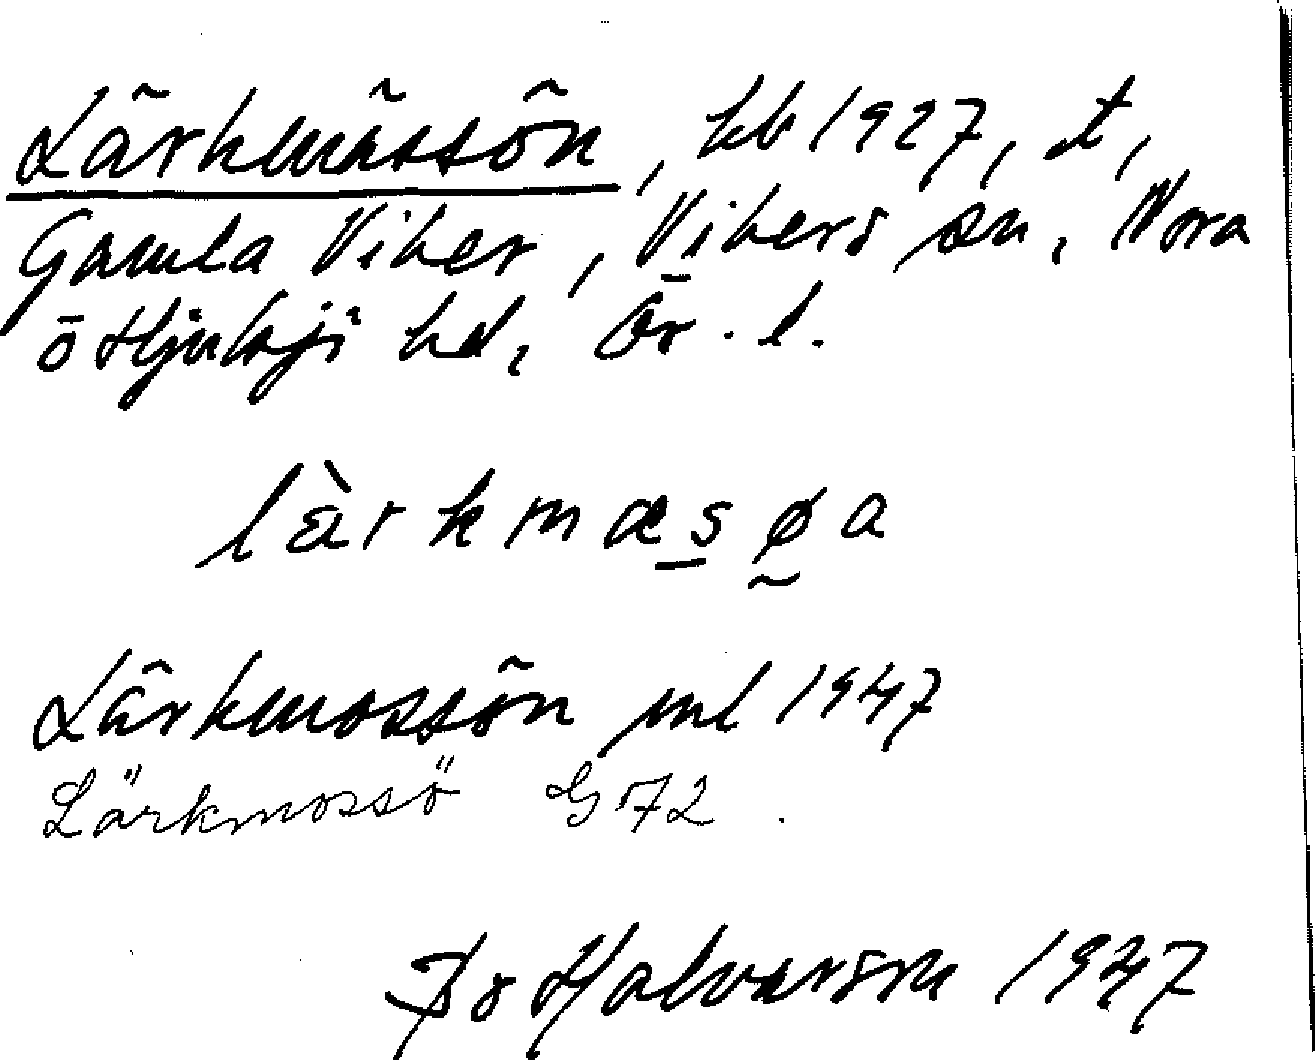 Lärkmässön, kb 1927, t,
Gamla Viker, Vikers sn, Nora
o Hjulsjö hd, Ör. l.
làrkmæsøa
Lärkmossön uml 1947
Lärkmossö G 72.
Halvarson 1947